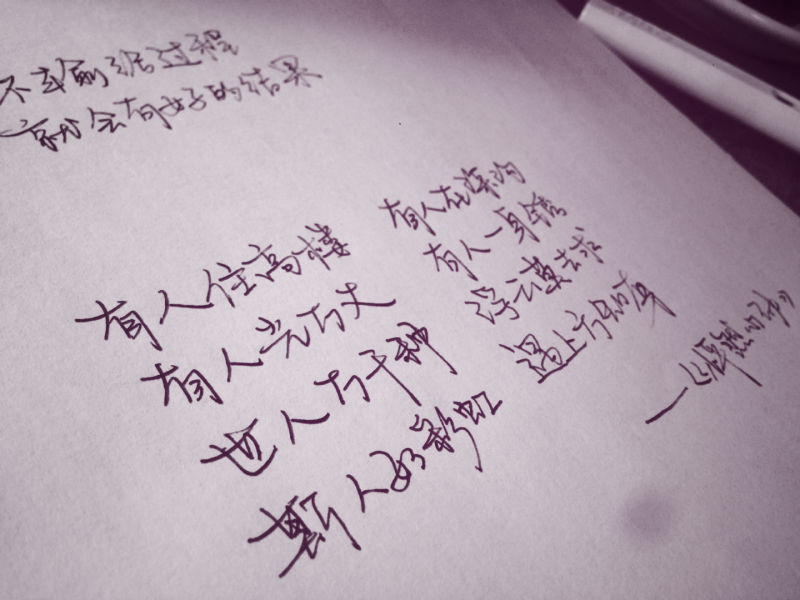 不去 过程
就会有好的结果
有人住高楼 有人在深沟
有人光万丈 有人一身锈
世人万千种 浮云莫去求
斯人如彩虹 遇上方知有
—《怦然心动》